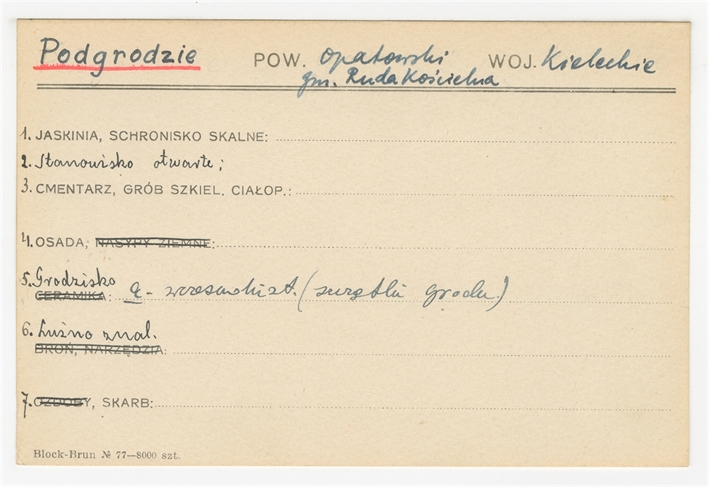 Podgrodzie POW. Opatowski WOJ. Kieleckie
gm. Ruda Kościelna
1. JASKINIA, SCHRONISKO SKALNE:
2. Stanowisko otwarte;
3. CMENTARZ, GRÓB SZKIEL. CIAŁOP.:
4. OSADA, NASYPY ZIEMNE:
5. Grodzisko
CERAMIKA: a - wczesnohist. (szczątki grodu)
6. Luźno znal.
BROŃ, NARZĘDZIA:
7. OZDOBY, SKARB:
Block-Brun № 77—8000 szt.